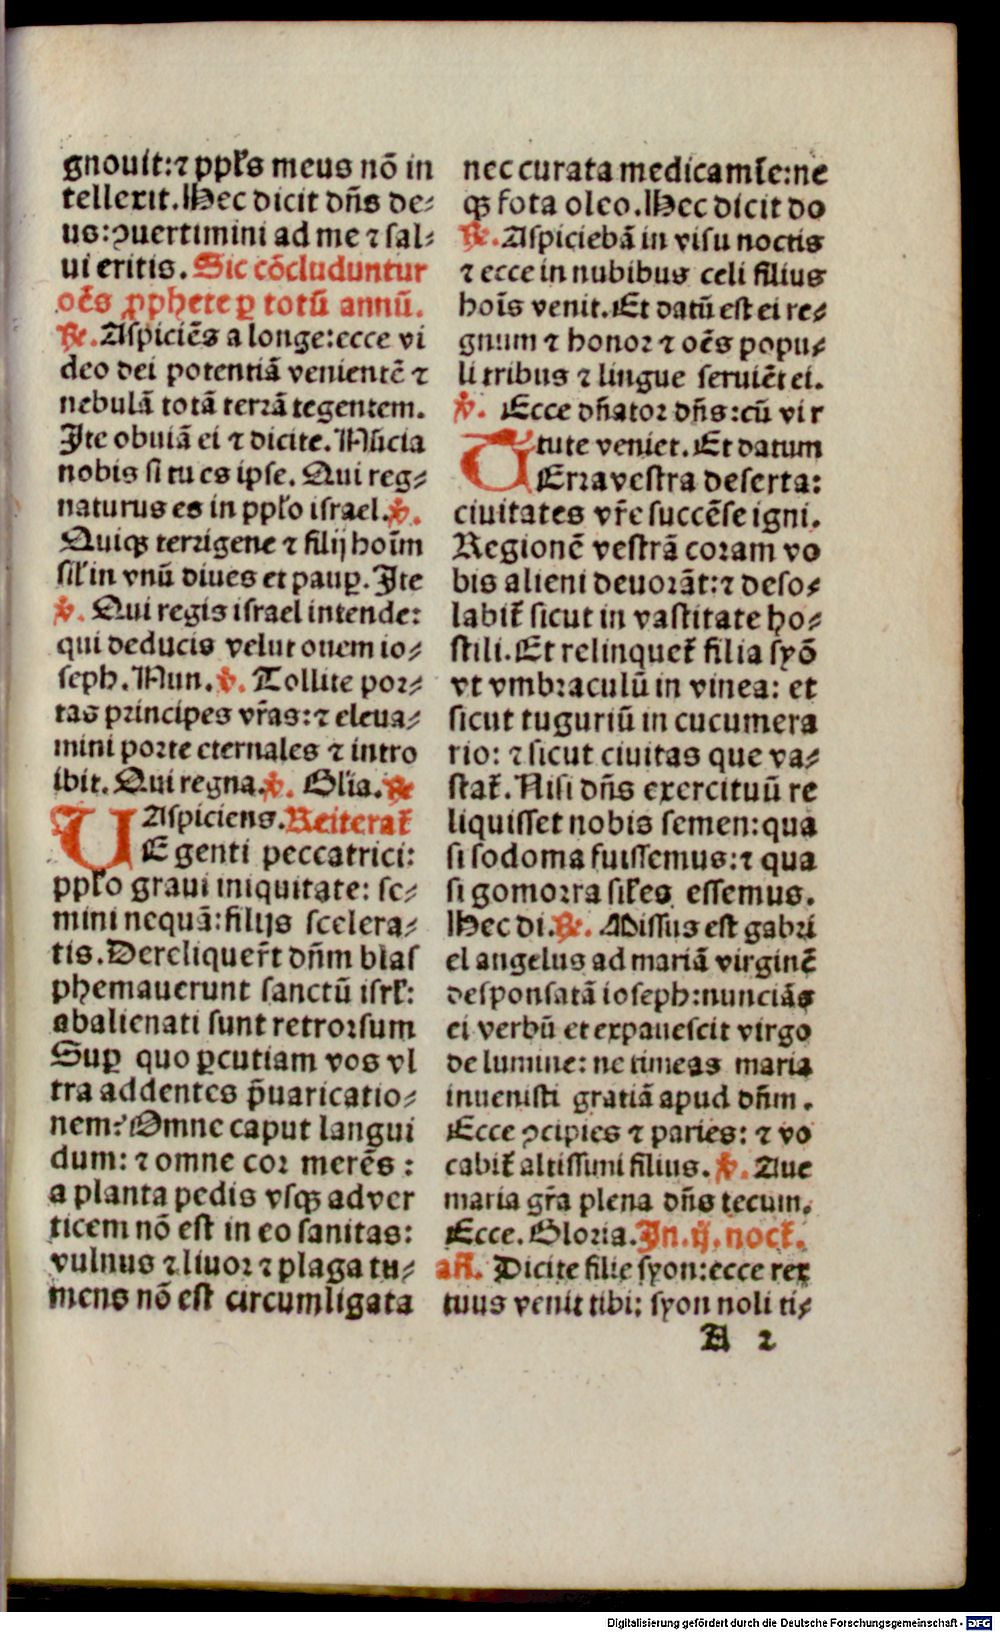 gnouit:⁊ ppl̃s meus nõ in
tellexit. Hec dicit dñs de⸗
us:ꝯuertimini ad me ⁊ sal⸗
ui eritis. Sic cõcluduntur
oẽs ꝓphete ꝑ totũ annũ.
℟. Aspiciẽs a longe:ecce vi
deo dei potentiã venientẽ ⁊
nebulã totã terrã tegentem.
Ite obuiã ei ⁊ dicite. Nũcia
nobis si tu es ipse. Qui reg⸗
naturus es in ppl̃o israel. ℣.
Quiqꝫ terrigene ⁊ filij hoĩm
sil̃ in vnũ diues et pauꝑ. Ite
℣. Qui regis israel intende:
qui deducis velut ouem io⸗
seph. Nun. ℣. Tollite por⸗
tas principes vr̃as:⁊ eleua⸗
mini porte eternales ⁊ intro
ibit. Qui regna. ℣. Glia. ℟
Aspiciens. Reiterat̃
VE genti peccatrici:
ppl̃o graui iniquitate: se⸗
mini nequã:filijs scelera⸗
tis. Dereliquer̃t dñm blas
phemauerunt sanctũ isrl̃:
abalienati sunt retrorsum
Suꝑ quo ꝑcutiam vos vl
tra addentes p̃uaricatio⸗
nem? Omne caput langui
dum: ⁊ omne cor merẽs :
a planta pedis vsqꝫ ad ver
ticem nõ est in eo sanitas:
vulnus ⁊ liuor ⁊ plaga tu⸗
mens nõ est circumligata
nec curata medicam̃e:ne
qꝫ fota oleo. Hec dicit do
℟. Aspiciebã in visu noctis
⁊ ecce in nubibus celi filius
hoĩs venit. Et datũ est ei re⸗
gnum ⁊ honor ⁊ oẽs popu⸗
li tribus ⁊ lingue seruiẽt ei.
℣. Ecce dñator dñs:cũ vir
tute veniet. Et datum
TErra vestra deserta:
ciuitates vr̃e succẽse igni.
Regionẽ vestrã coram vo
bis alieni deuorãt:⁊ deso⸗
labit̃ sicut in vastitate ho⸗
stili. Et relinquet̃ filia syõ
vt vmbraculũ in vinea: et
sicut tuguriũ in cucumera
rio: ⁊ sicut ciuitas que va⸗
stat̃. Nisi dñs exercituũ re
liquisset nobis semen:qua
si sodoma fuissemus:⁊ qua
si gomorra sil̃es essemus.
Hec di. ℟. Missus est gabri
el angelus ad mariã virginẽ
desponsatã ioseph:nunciãs
ei verbũ et expauescit virgo
de lumine: ne timeas maria
inuenisti gratiã apud dñm.
Ecce ꝯcipies ⁊ paries: ⁊ vo
cabit̃ altissimi filius. ℣. Aue
maria gr̃a plena dñs tecum.
Ecce. Gloria. In. ij. noct̃.
añ. Dicite filie syon:ecce rex
tuus venit tibi: syon noli ti⸗
A 2
Digitalisierung gefördert durch die Deutsche Forschungsgemeinschaft - DFG